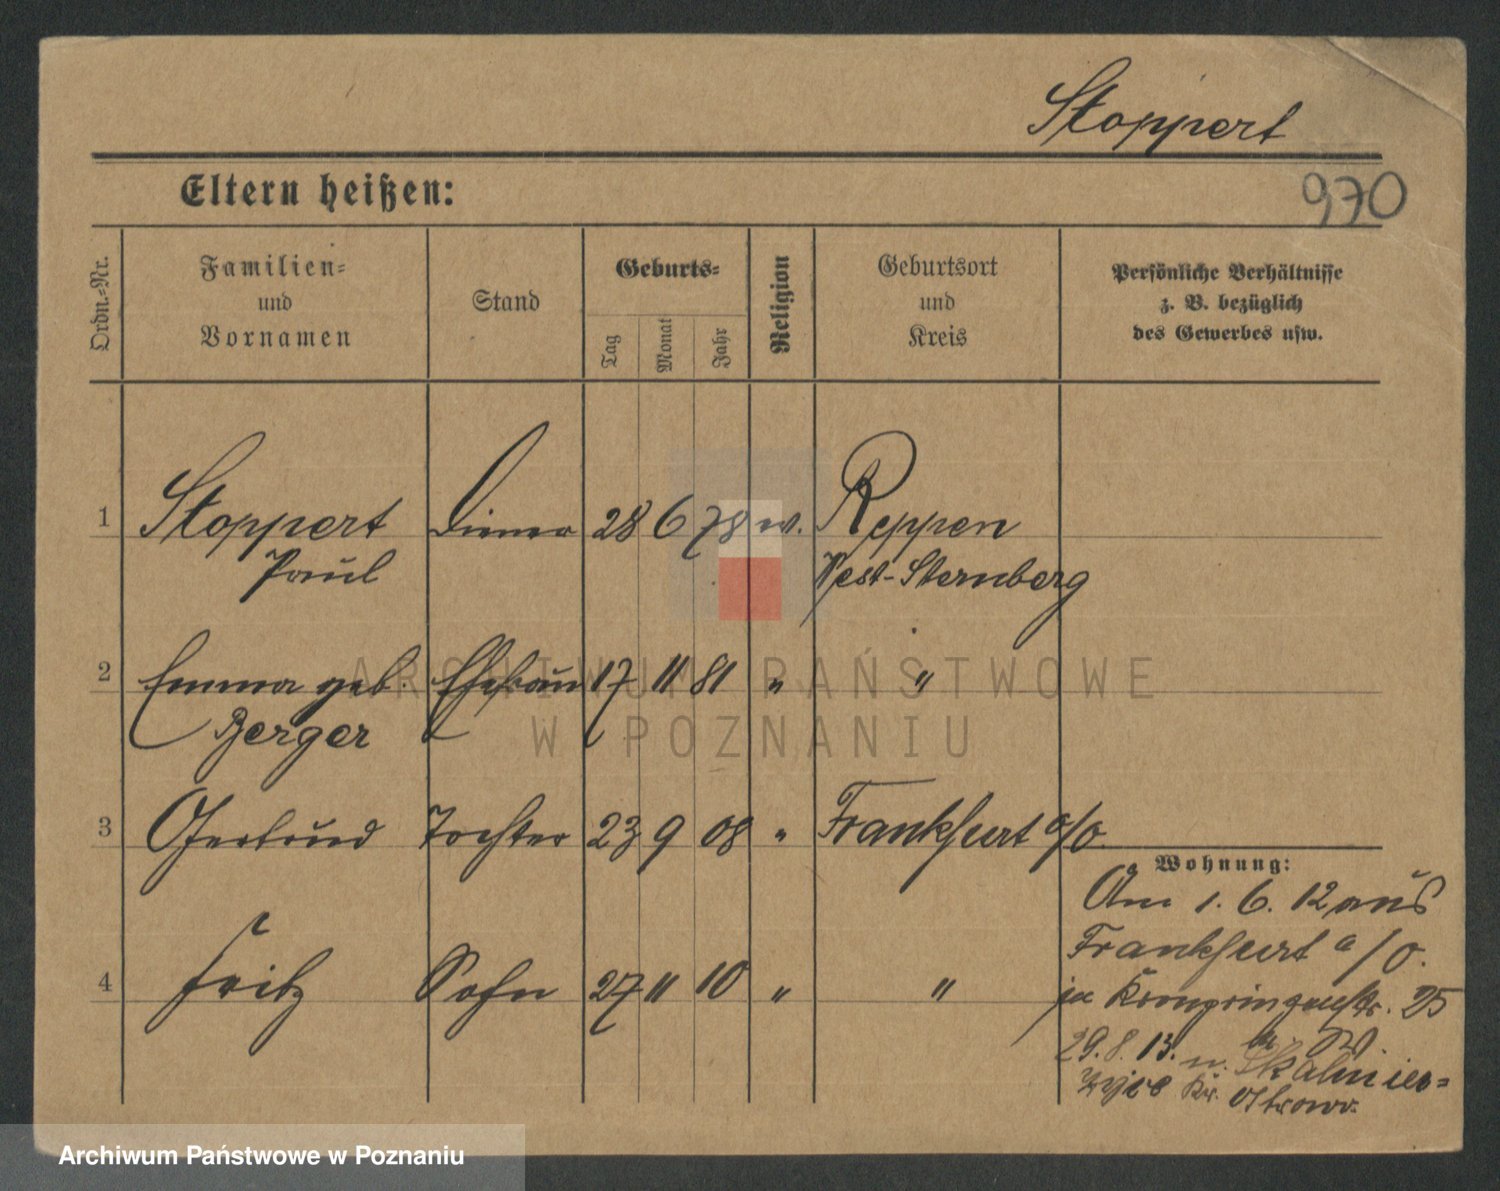 Stoppert
970
Eltern heißen:
Ordn.-Nr.
Familien-
und
Vornamen
Stand
Geburts-
Tag
Monat
Jahr
Religion
Geburtsort
und
Kreis
Persönliche Verhältnisse
z. B. bezüglich
des Gewerbes usw.
1 Stoppert Diener 28 6 78 ev. Reppen
Paul West-Sternberg
2 Emma geb. Ehefrau 17 11 81 " "
Berger
3 Gertrud Tochter 23 9 08 " Frankfurt a/O.
Wohnung:
Am 1. 6. 12 aus
Frankfurt a/O.
4 Fritz Sohn 27 11 10 " "
Kronprinzenstr. 25
29. 8. 13. n. Skalmier-
Kr. Ostrowo.
ARCHIWUM PAŃSTWOWE
W POZNANIU
Archiwum Państwowe w Poznaniu